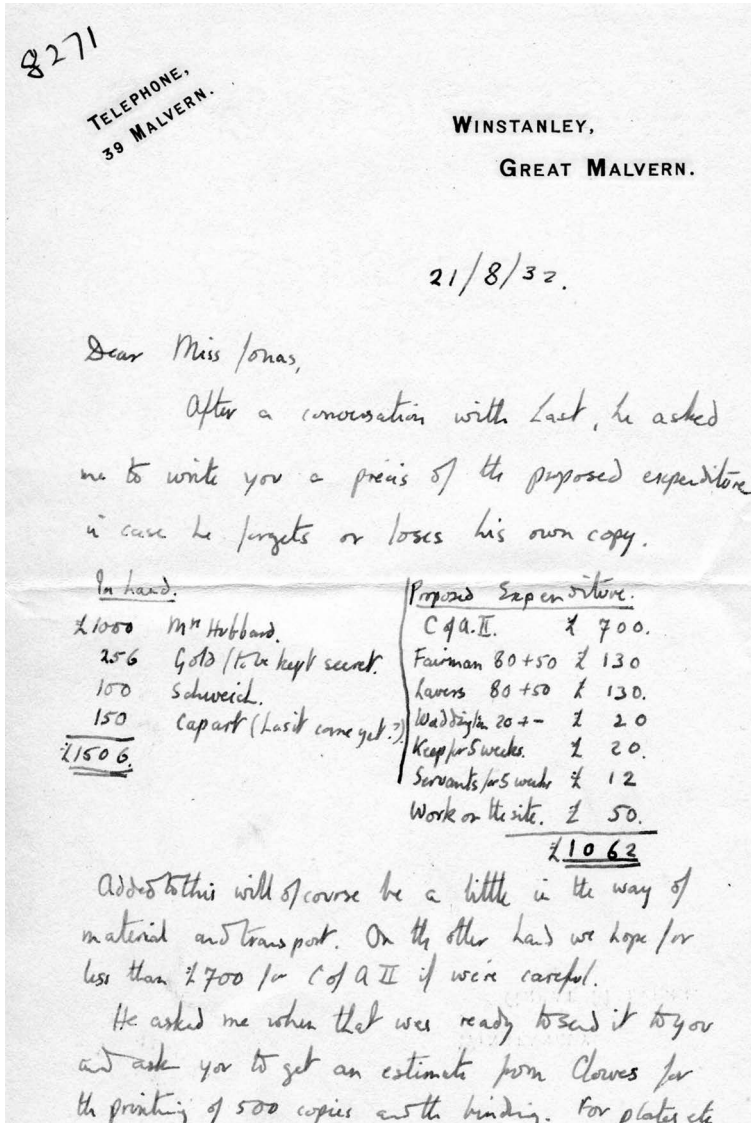 8271
TELEPHONE,
39 MALVERN.
WINSTANLEY,
GREAT MALVERN.
21/8/32.
Dear Miss Jonas,
After a conversation with Last, he asked
me to write you a précis of the proposed expenditure
in case he forgets or loses his own copy.
In hand.
£1000 Mrs Hubbard.
256 Gold (to be kept secret.
100 Schweich.
150 Capart (Last come yet.?)
£1506.
Proposed Expenditure.
C of A. II. £ 700.
Fairman 80+50 £ 130
Lavers 80+50 £ 130.
Waddington 20+- £ 20
Keep for 5 weeks. £ 20.
Servants for 5 weeks £ 12
Work on the site. £ 50.
£1062
Added to this will of course be a little in the way of
material and transport. On the other hand we hope for
less than £700 for C of A II if we're careful.
He asked me when that was ready to send it to you
and ask you to get an estimate from Clowes for
the printing of 500 copies and the binding. For plates etc